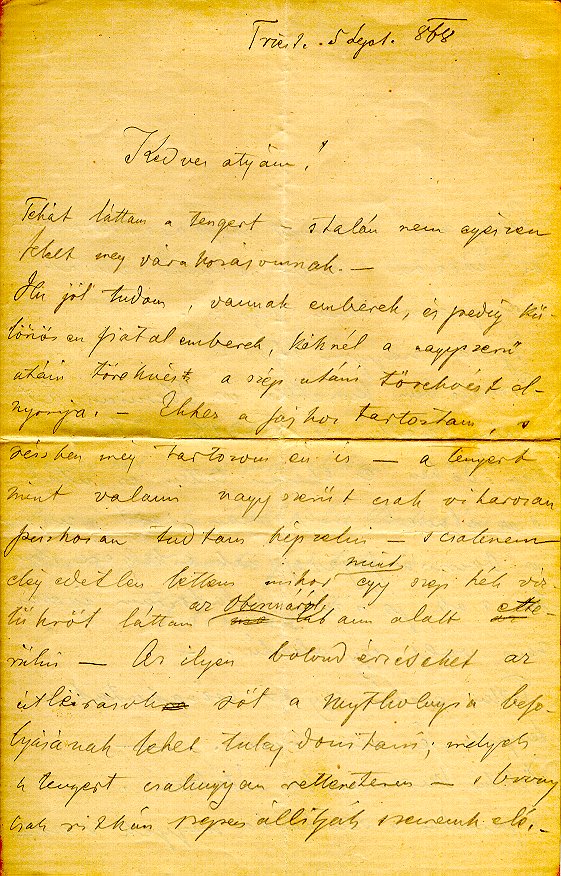 Triest. 5 Sept. 868
Kedves atyám!
Tehát láttam a tengert – s talán nem egészen
felelt meg várakozásomnak. –
Én jól tudom, vannak emberek, és pedig kü-
lönösen fiatal emberek, kiknél a nagyszerű
utáni törekvést a szép utáni törekvést el-
nyomja. – Ekhez a fajhoz tartoztam, s
részben még tartozom én is – a tengert
mint valami nagyszerűt csak viharosan
piszkosan tudtam képzelni – s csaknem
elégedetlen lettem mikor mint egy szép kék víz-
tükröt láttam az Obcsináról lábaim alatt elte-
rülni – Az ilyen bolond érzéseket az
útleirások sőt a mythologia befo-
lyásának lehet tulajdonítani; melyek
a tengert csakugyan rettenetesen – s bizony
csak ritkán szépen állítják szemeink elé. –